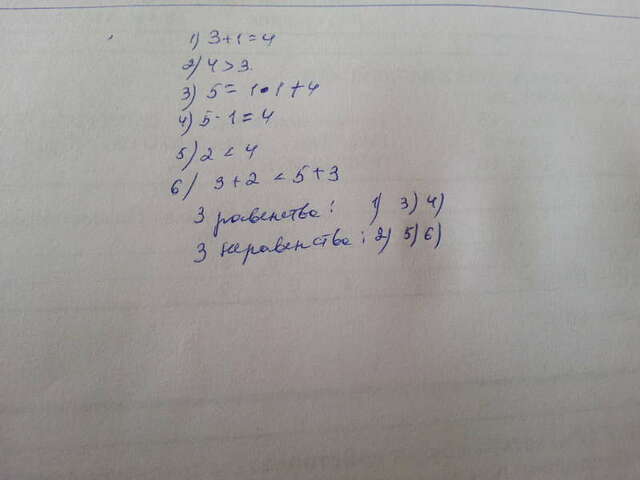 1) 3+1=4
2) 4>3.
3) 5=1•1+4
4) 5-1=4
5) 2<4
6) 3+2<5+3
3 равенства: 1) 3) 4)
3 неравенства: 2) 5) 6)